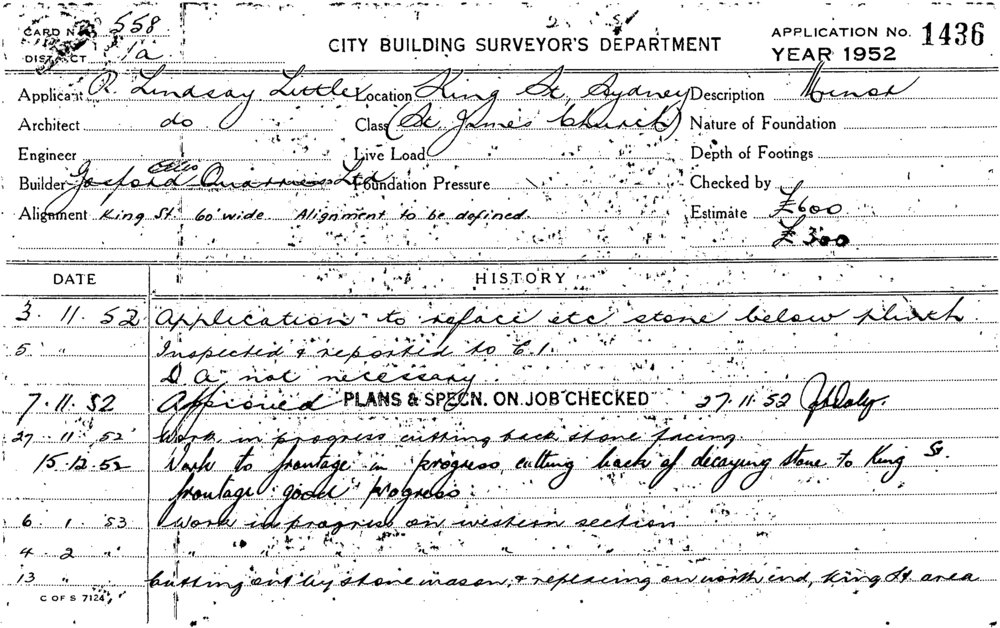 CARD No. 558
DISTRICT 1a
CITY BUILDING SURVEYOR'S DEPARTMENT
APPLICATION No. 1436
YEAR 1952
Applicant R. Lindsay Little Location King St, Sydney Description Minor
Architect do Class (St. James Church) Nature of Foundation
Engineer Live Load Depth of Footings
Builder Gosford Quarries Ltd Foundation Pressure Checked by
Alignment King St 60' wide. Alignment to be defined Estimate £600
£300
DATE HISTORY
3. 11. 52 Application to reface etc stone below plinth
5 " Inspected & reported to C.I.
D A not necessary
7. 11. 52 Approved PLANS & SPECN. ON JOB CHECKED 27.11.52 Daly.
27 11 52 Work in progress cutting back stone facing
15.12.52 Work to frontage in progress, cutting back of decaying stone to King St.
frontage good progress
6 1 53 Work in progress on western section
4 2 " " " " "
13 " Cutting out by stone mason, & replacing on north end, King St. area
C OF S 7124